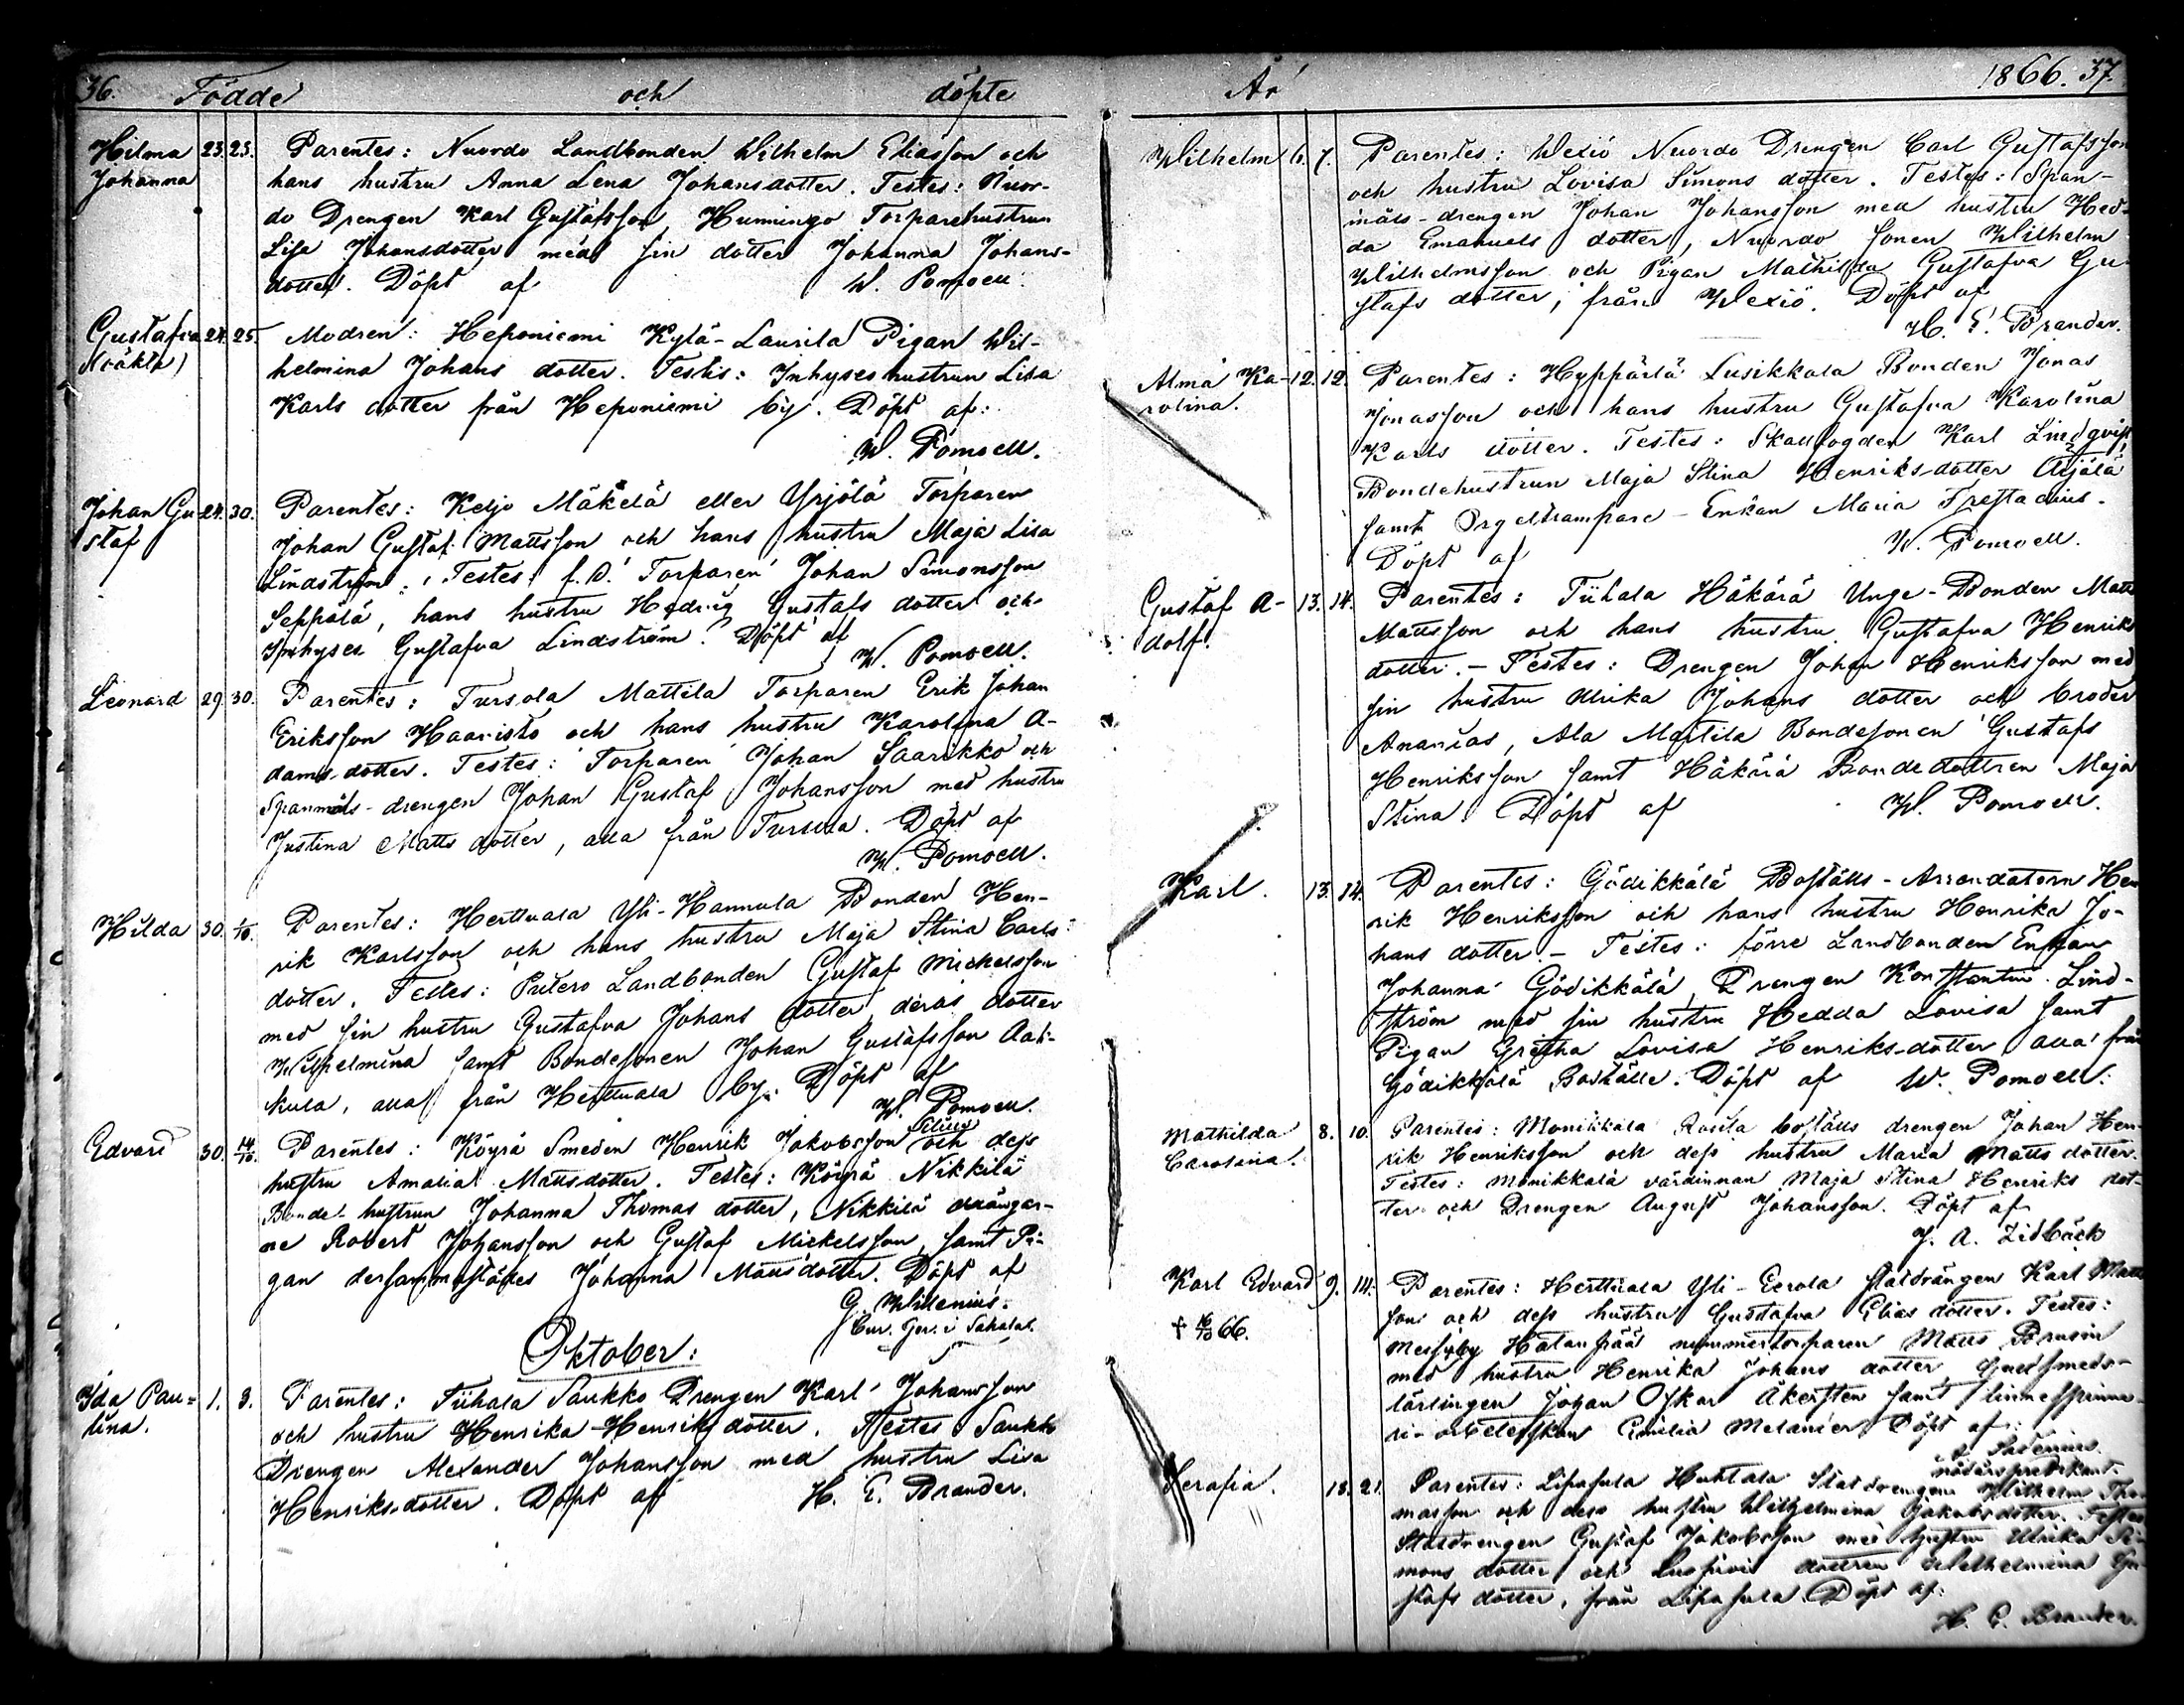 36. Födde och döpte
Hilma 23. 25. Parentes: Nuordo Landbonden Wilhelm Eliasson och
Johanna hans hustru Anna Lena Johansdotter. Testes: Nuor-
do Drengen Karl Gustafsson Humingo Torparehustrun
Lisa Johansdotter med sin dotter Johanna Johans-
dotter. Döpt af W. Pomoell.
Gustafva 24. 25. Modren: Heponiemi Kylä-Laurila Pigan Wil-
(oäkta) helmina Johans dotter. Testis: Inhyses hustrun Lisa
Karls dotter från Heponiemi by. Döpt af:
W. Pomoell.
Johan Gu- 24. 30. Parentes: Keljo Mäkelä eller Yrjölä Torparen
staf Johan Gustaf Mattsson och hans hustru Maja Lisa
Lindström. Testes: f. d. Torparen Johan Simonsson
Seppälä, hans hustru Hedvig Gustafs dotter och
Inhyses Gustafva Lindström. Döpt af
W. Pomoell.
Leonard 29. 30. Parentes: Tursola Mattila Torparen Erik Johan
Eriksson Haavisto och hans hustru Karolina A-
dams dotter. Testes: Torparen Johan Saarikko och
Spanmåls-drengen Johan Gustaf Johansson med hustru
Justina Matts dotter, alla från Tursola. Döpt af
W. Pomoell.
Hilda 30. 1/10. Parentes: Herttuala Yli-Hannula Bonden Hen-
rik Karlsson och hans hustru Maja Stina Carls
dotter. Testes: Landbonden Gustaf Michelsson
med sin hustru Gustafva Johans dotter, deras dotter
Wilhelmina samt Bondesonen Johan Gustafsson Aak-
kula, alla från Herttuala by. Döpt af
W. Pomoell.
Edvard 30. 14/10. Parentes: Köyrä Smeden Henrik Jakobsson och dess
hustru Amalia Mattsdotter. Testes: Köyrä Nikkilä
Bonde-hustrun Johanna Thomas dotter, Nikkilä drängar-
ne Robert Johansson och Gustaf Mickelsson, samt Pi-
gan dersammastädes Johanna Mattsdotter. Döpt af
G. Willenius.
Cur. Ger. i Sahalaks.
Oktober:
Ida Pau- 1. 3. Parentes: Tiihala Saukko Drengen Karl Johansson
lina. och hustru Henrika Henriksdotter. Testes Saukko
Drengen Alexander Johansson med hustru Lisa
Henriksdotter. Döpt af H. E. Brander.
År 1866. 37.
Wilhelm 6. 7. Parentes: Wexiö Nuordo Drengen Carl Gustafsson
och hustru Lovisa Simons dotter. Testes: Span-
måls-drengen Johan Johansson med hustru Hed-
da Emanuels dotter, Nuordo sonen Wilhelm
Wilhelmsson och Pigan Mathilda Gustafva Gu-
stafs dotter, från Wexiö. Döpt af
H. E. Brander.
Alma Ka- 12. 12. Parentes: Hyppärlä Lusikkala Bonden Jonas
rolina. Jonasson och hans hustru Gustafva Karolina
Karls dotter. Testes: Skallfogden Karl Lindqvist,
Bondehustrun Maja Stina Henriks-dotter Äijälä
samt Orgeltrampare-Enkan Maria Frestadius.
Döpt af W. Pomoell.
Gustaf A- 13. 14. Parentes: Tiihala Häkärä Unge-Bonden Matts
dolf. Mattsson och hans hustru Gustafva Henriks
dotter. - Testes: Drengen Johan Henriksson med
sin hustru Ulrika Johans dotter och broder
Ananias, Ala Mattila Bondesonen Gustafs
Henriksson samt Häkärä Bondedottren Maja
Stina. Döpt af W. Pomoell.
Karl. 13. 14. Parentes: Gödikkälä Boställs-Arrendatorn Hen
rik Henriksson och hans hustru Henrika Jo-
hans dotter. - Testes: förre Landbonden Enkan
Johanna Gödikkälä, Drengen Konstantin Lind-
ström med sin hustru Hedda Lovisa samt
Pigan Gretha Lovisa Henriks-dotter, alla från
Gödikkälä Boställe. Döpt af W. Pomoell.
Mathilda 8. 10. Parentes: Monikkala Rusila boställs drengen Johan Hen-
Carolina. rik Henriksson och dess hustru Maria Matts dotter.
Testes: Monikkala värdinnan Maja Stina Henriks dot-
ter och Drengen August Johansson. Döpt af
J. A. Zidbäck
Karl Edvard 9. 14. Parentes: Herttuala Yli-Eerola statdrängen Karl Matts
son och dess hustru Gustafva Elias dotter. Testes:
† 16/10 66. Messuby Hatanpää nummertorparen Matts Brusin
med hustru Henrika Johans dotter Guldsmeds-
lärlingen Johan Oskar Åkersten samt linnespinne-
ri-arbeterskan Emilia Melanier Döpt af:
nödårspredikant.
Serafia. 18. 21. Parentes: Lihasula Huhtala Statdrengen Wilhelm Tho-
masson och dess hustru Wilhelmina Jakobsdotter. Testes
Statdrengen Gustaf Jakobsson med hustru Ulrika Si-
mons dotter och dottren Wilhelmina Gu-
stafs dotter, från Lihasula Döpt af:
H. E. Brander.